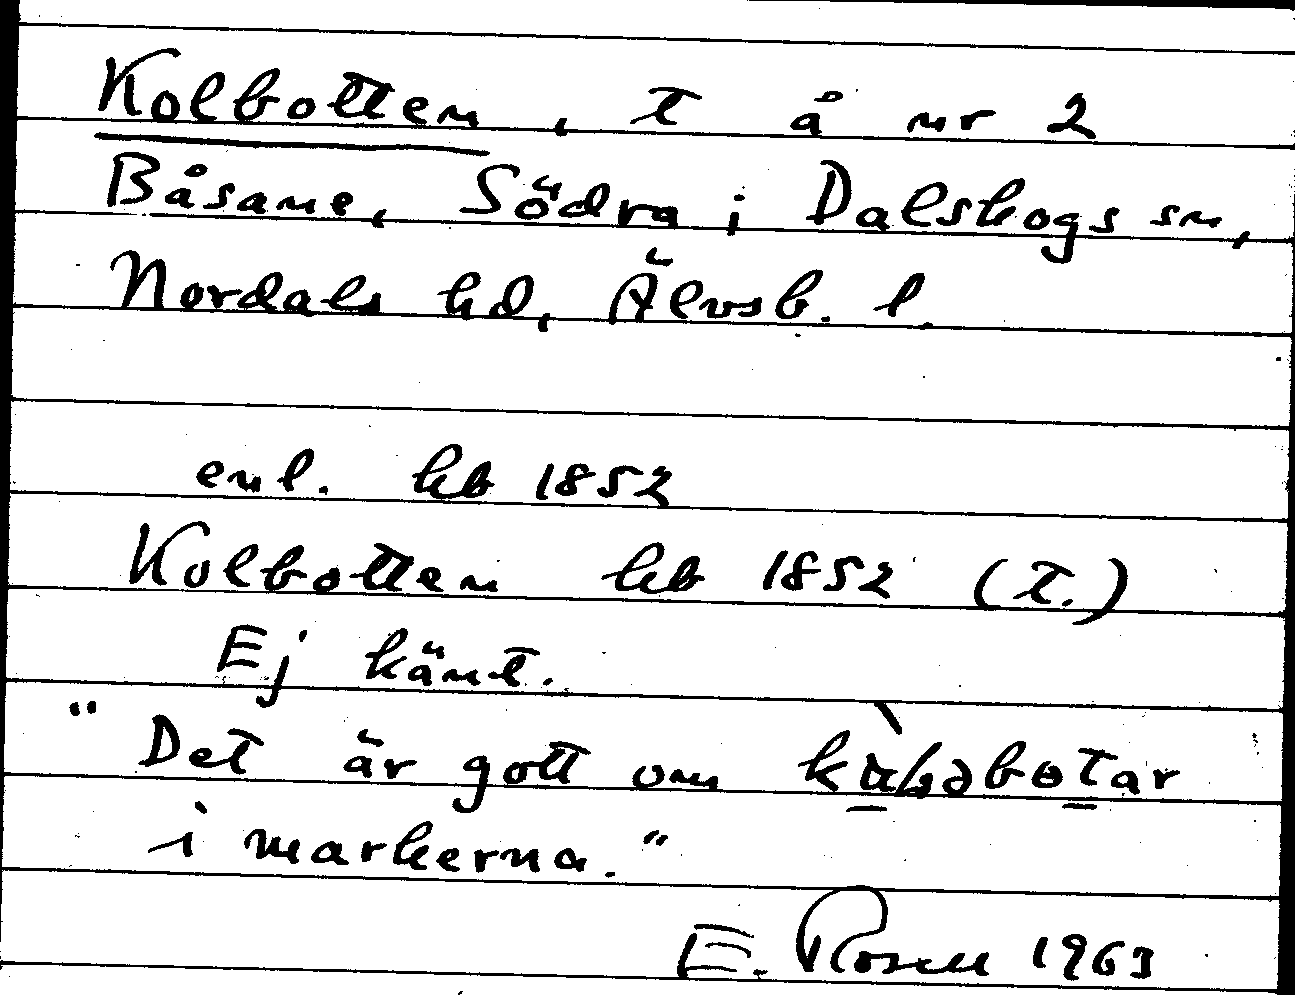 Kolbotten, t å nr 2
Båsane, Södra i Dalskogs sn,
Nordals hd, Älvsb. l.
enl. hb 1852
Kolbotten hb 1852 (t.)
Ej känt.
"Det är gott om
i markerna."
E. Rosell 1963